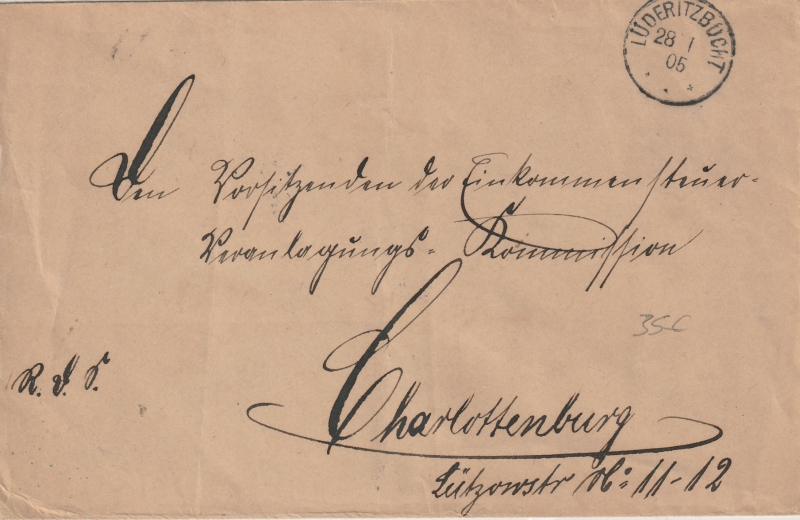 LÜDERITZBUCHT
28 1
05
Den Vorsitzenden der Einkommensteuer-
Veranlagungs-Kommission
35€
R. D. S.
Charlottenburg
Lützowstr No 11-12